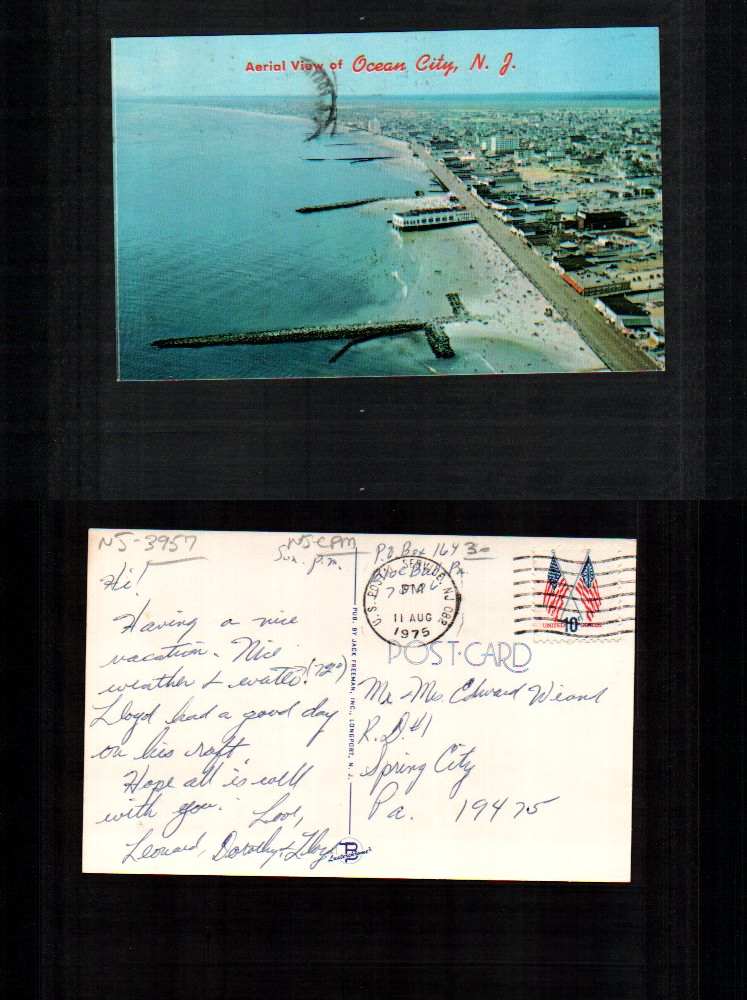 Aerial View of Ocean City, N. J.
NJ-3957
NJ-CPM
Sun. p.m.
P.O. Box 164 30
Pa.
U.S. POSTAL SERVICE, NJ 082
PM
11 AUG
1975
10¢
Hi!
Having a nice
vacation. Nice
weather & water! (72°)
Lloyd had a good day
on his raft.
Hope all is well
with you.
Love,
Leonard, Dorothy & Lloyd
PUB. BY JACK FREEMAN, INC., LONGPORT, N. J.
POST CARD
Mr. & Mrs. Edward Wiand
R.D.#1
Spring City
Pa. 19475